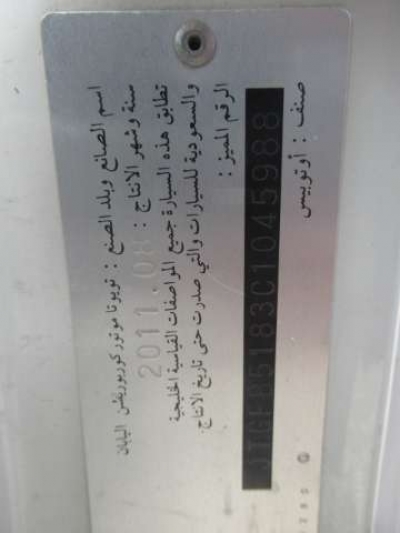 اسم الصانع وبلد الصنع : تويوتا موتور كوربوريشن اليابان
سنة وشهر الانتاج : 2011.08
تطابق هذه السيارة جميع المواصفات القياسية الخليجية
والسعودية للسيارات والتي صدرت حتى تاريخ الانتاج.
الرقم المميز :
JTGFB5183C1045988
صنف : أوتوبيس